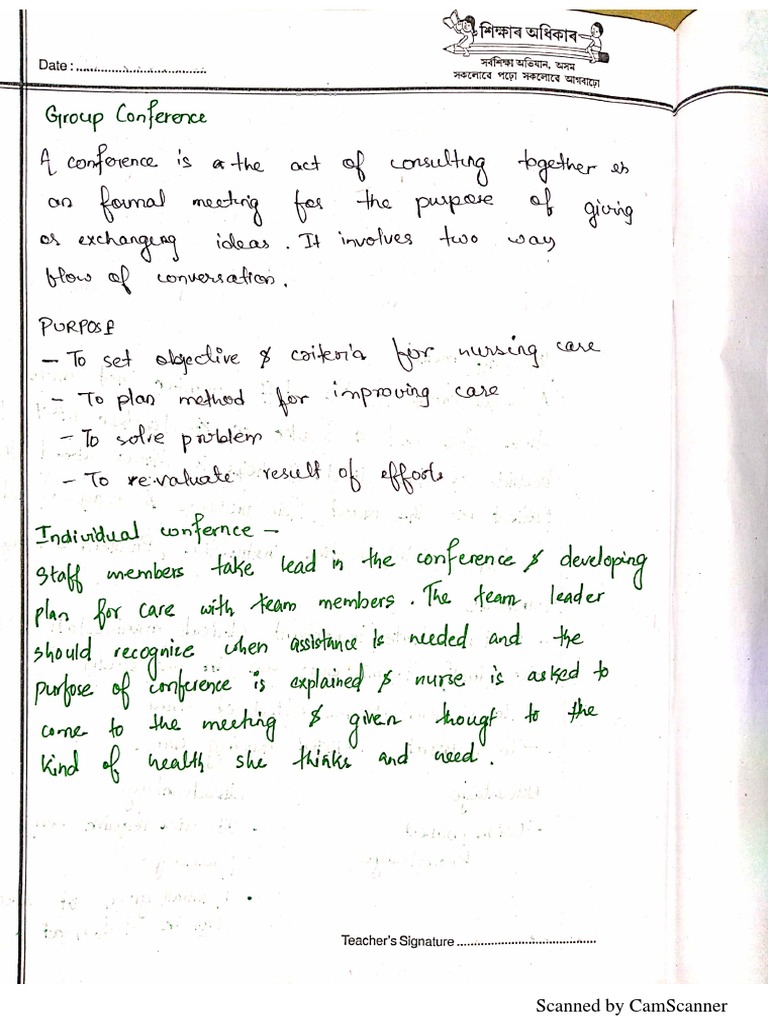 শিক্ষাৰ অধিকাৰ
সৰ্বশিক্ষা অভিযান, অসম
সকলোৱে পঢ়ো সকলোৱে আগবাঢ়ো
Date : ........................................
Group Conference
A conference is a the act of consulting together or
an formal meeting for the purpose of giving
or exchanging ideas. It involves two way
flow of conversation.
PURPOSE
- To set objective & criteria for nursing care
- To plan method for improving care
- To solve problem
- To revaluate result of efforts
Individual confernce -
Staff members take lead in the conference & developing
plan for care with team members. The team leader
should recognize when assistance is needed and the
purpose of conference is explained & nurse is asked to
come to the meeting & given thougt to the
kind of health she thinks and need.
Teacher's Signature ........................................
Scanned by CamScanner